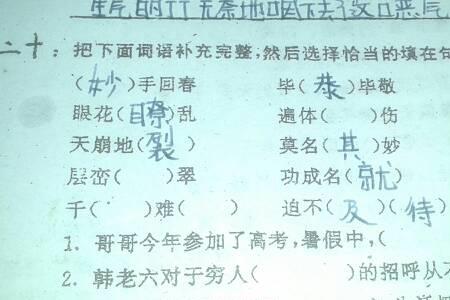 二十：把下面词语补充完整，然后选择恰当的填在句
（妙）手回春 毕（恭）毕敬
眼花（瞭）乱 遍体（ ）伤
天崩地（裂） 莫名（其）妙
层峦（ ）翠 功成名（就）
千（ ）难（ ） 迫不（及）（待）
1. 哥哥今年参加了高考，暑假中，（
2. 韩老六对于穷人（ ）的招呼从不